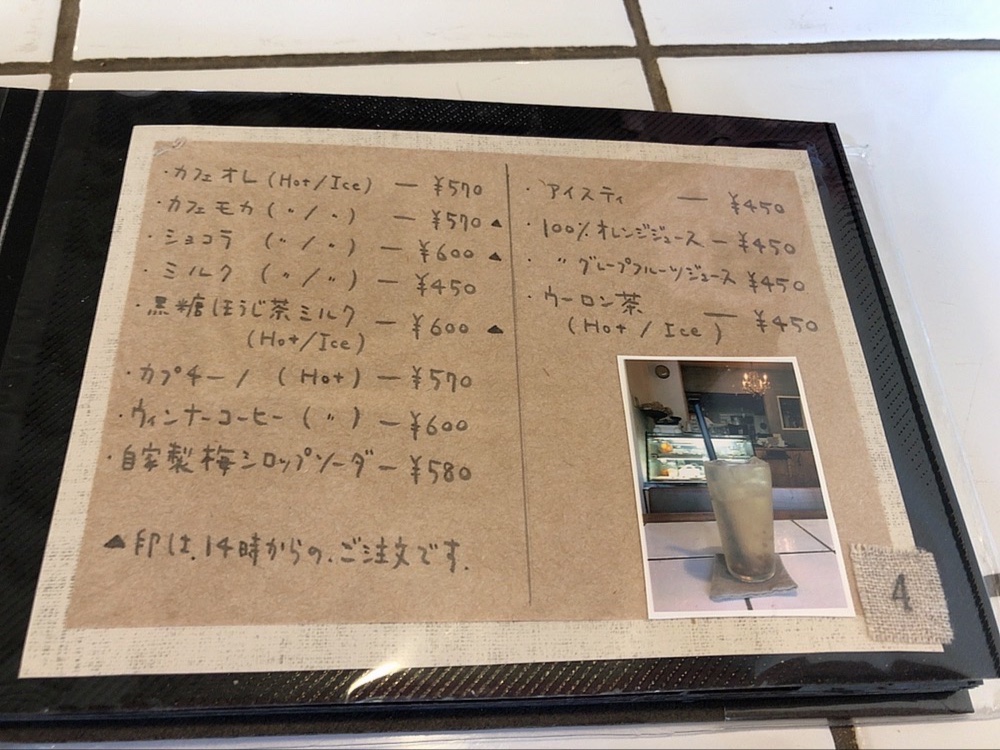 ・カフェオレ(Hot/Ice) ― ¥570
・カフェモカ(〃/〃) ― ¥570▲
・ショコラ (〃/〃) ― ¥600▲
・ミルク (〃/〃) ― ¥450
・黒糖ほうじ茶ミルク ― ¥600▲
(Hot/Ice)
・カプチーノ (Hot) ― ¥570
・ウィンナーコーヒー (〃) ― ¥600
・自家製梅シロップソーダ ― ¥580
▲印は、14時からの、ご注文です.
・アイスティ ― ¥450
・100%オレンジジュース ― ¥450
・〃グレープフルーツジュース ¥450
・ウーロン茶 ― ¥450
(Hot/Ice)
4